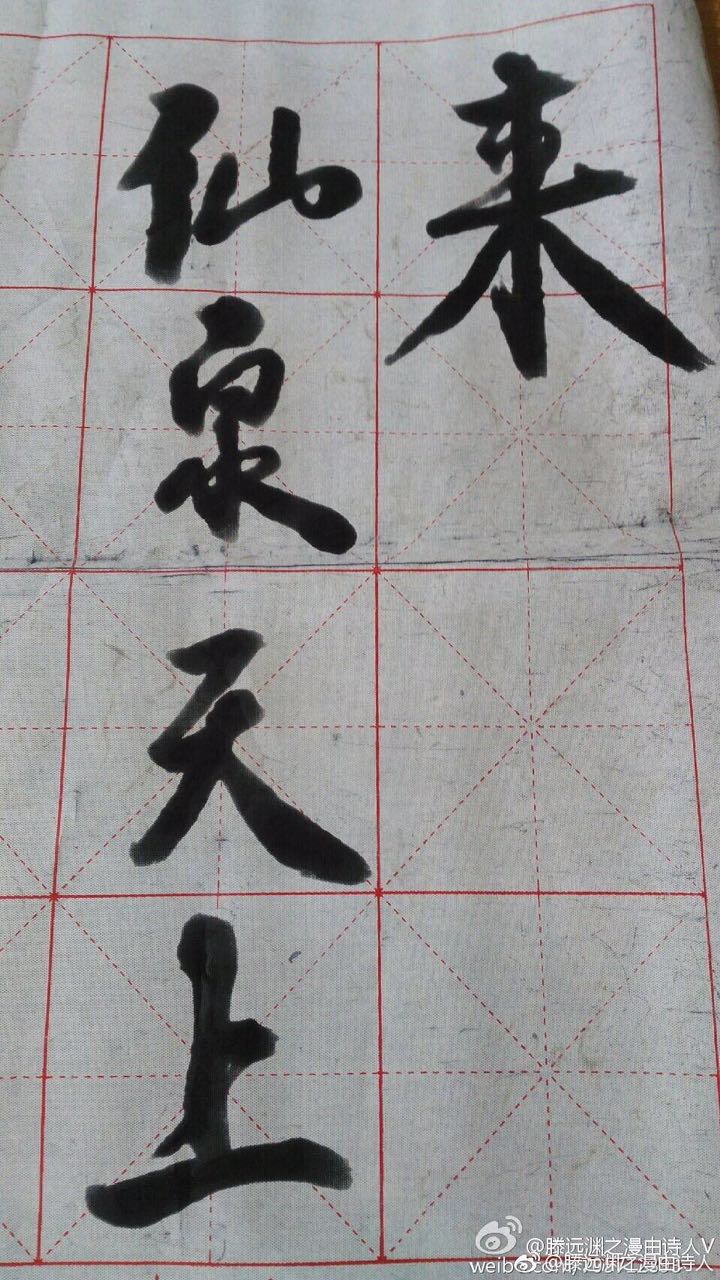 来
仙泉天上
@滕远渊之漫由诗人V
@滕远渊之漫由诗人